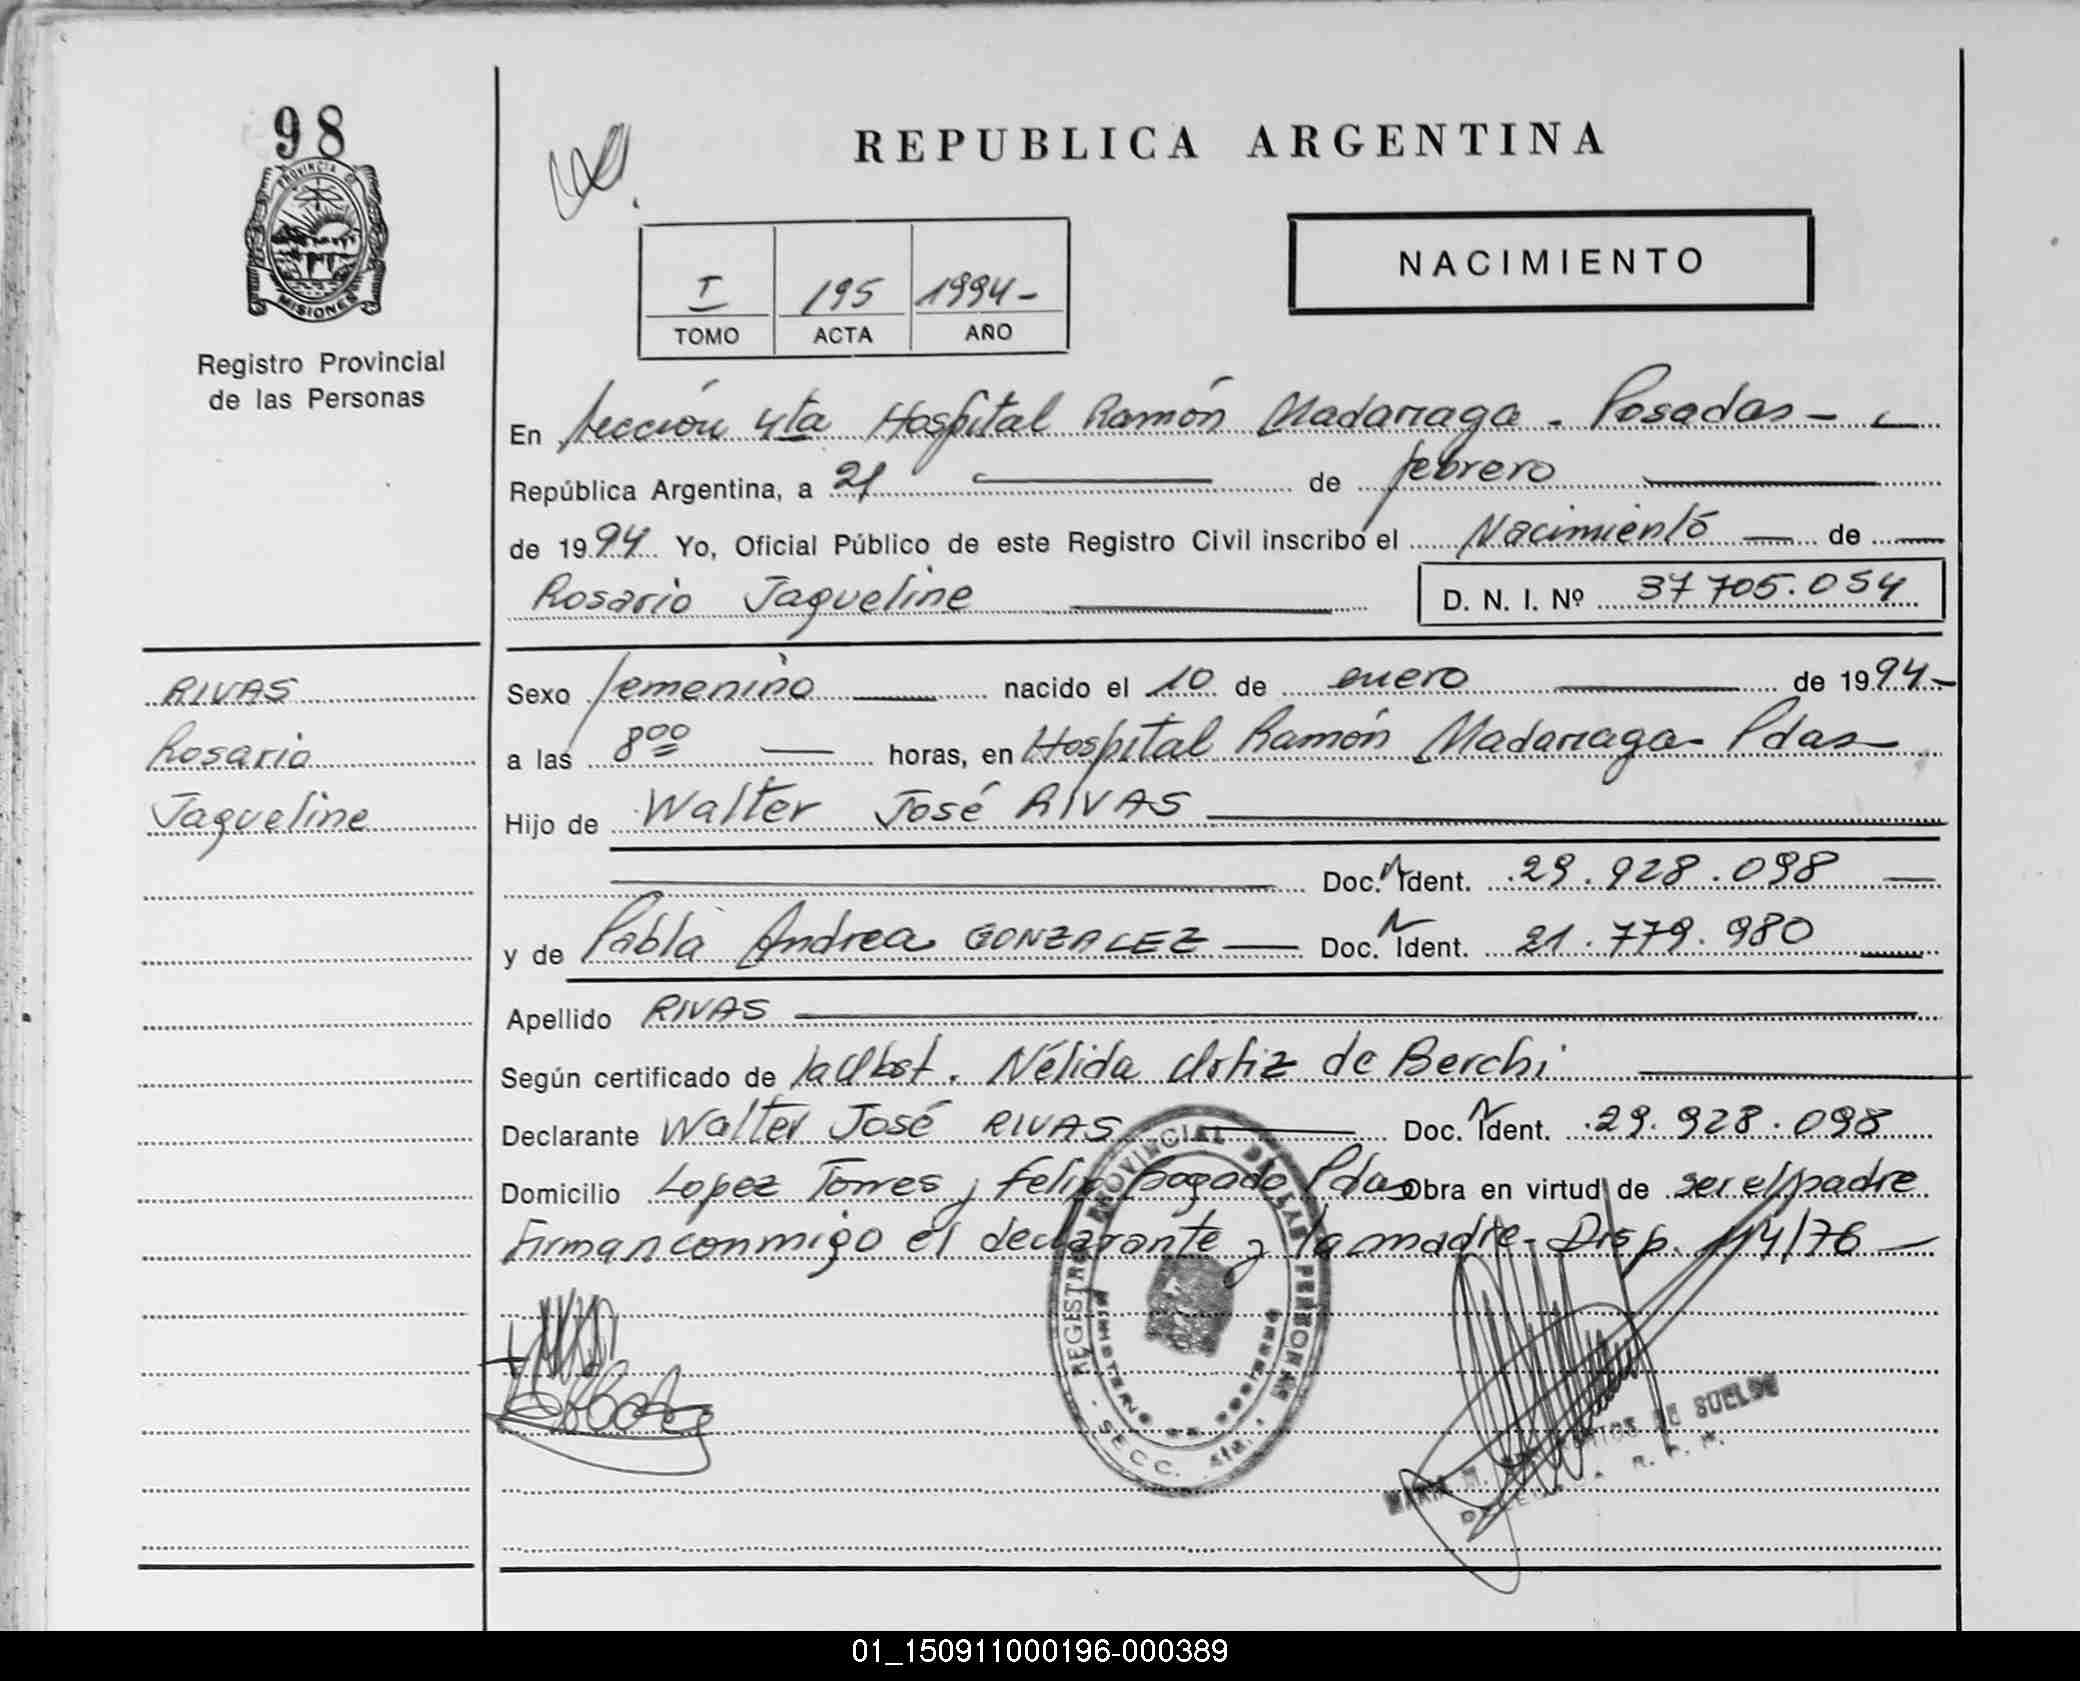 98
PROVINCIA DE
MISIONES
Registro Provincial
de las Personas
REPUBLICA ARGENTINA
NACIMIENTO
I 195 1994-
TOMO ACTA AÑO
En Sección 4ta Hospital Ramón Madariaga - Posadas -
República Argentina, a 21 de febrero
de 1994 Yo, Oficial Público de este Registro Civil inscribo el Nacimiento de
Rosario Jaqueline D. N. I. Nº 37 705.054
RIVAS
Rosario
Jaqueline
Sexo femenino nacido el 10 de enero de 1994-
a las 8 00 horas, en Hospital Ramón Madariaga - Pdas
Hijo de Walter José RIVAS
Doc. N Ident. 29.928.098
y de Pabla Andrea GONZALEZ Doc. N Ident. 21.779.980
Apellido RIVAS
Según certificado de la Obst. Nélida Ortiz de Berchi
Declarante Walter José RIVAS Doc. N Ident. 29.928.098
Domicilio Lopez Torres y Felix Bogado Pdas Obra en virtud de ser el padre
Firman conmigo el declarante y la madre - Disp. 114/76
REGISTRO PROVINCIAL DE LAS PERSONAS
MINISTERIO DE GOBIERNO
- SECC. 4ta. -
MARIA M. DE SUELDO
DELEGADA R. P. P.
01_150911000196-000389